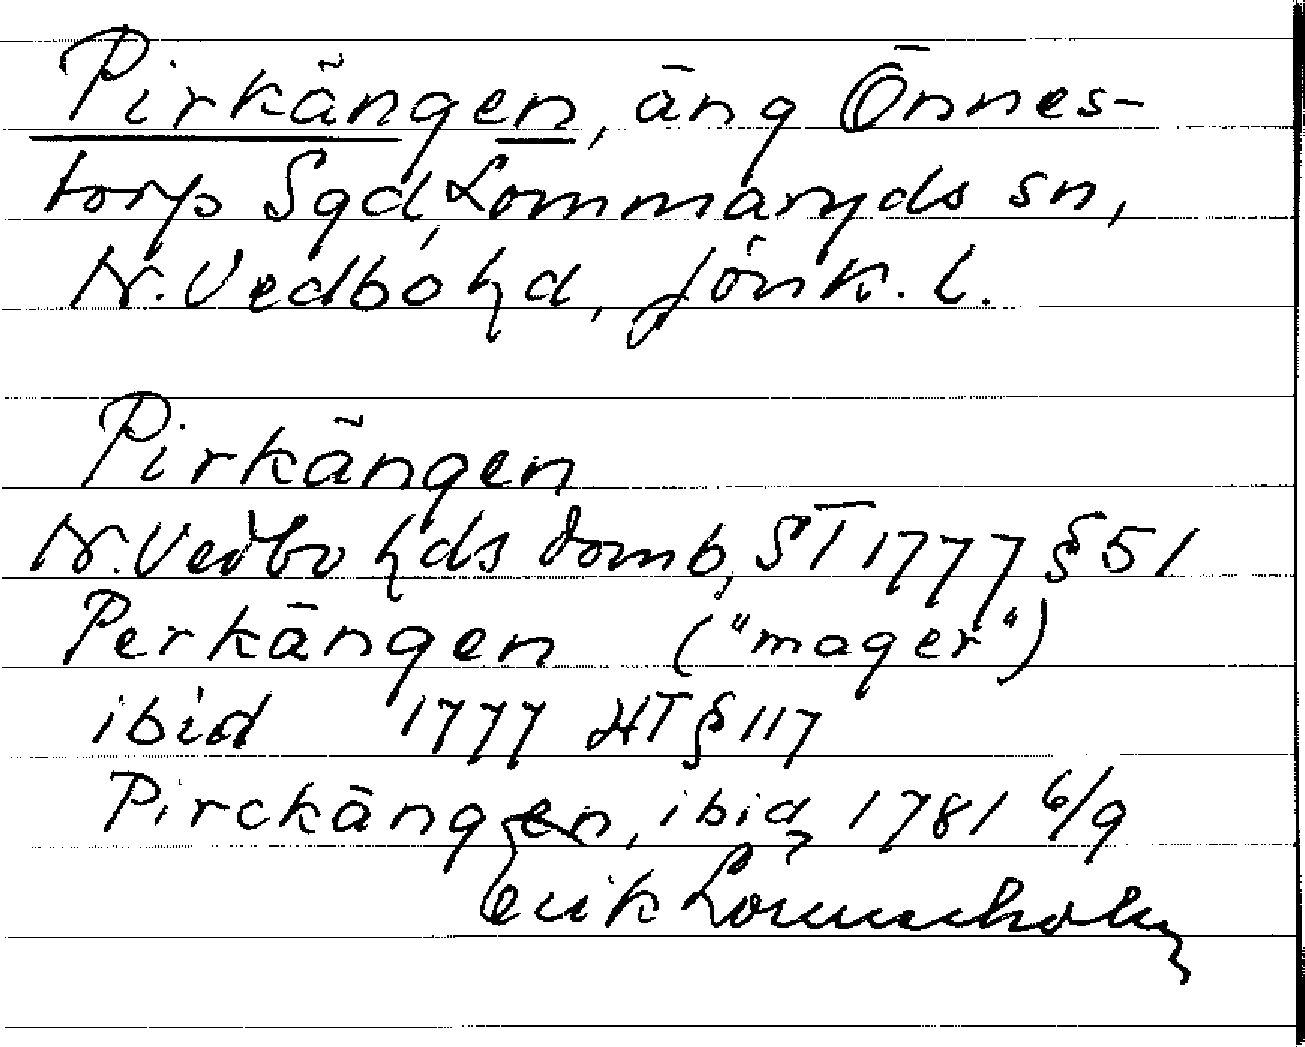 Pirkängen, äng Önnes-
torp Sgd, Lommaryds sn,
N. Vedbo hd, Jönk. l.
Pirkängen
N. Vedbo hds domb, ST 1777 § 51
Perkängen ("mager")
ibid 1777 HT § 117
Pirckängen, ibid, 1781 6/9
Erik Lönnerholm